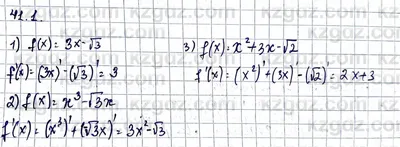 41.1.
1) f(x) = 3x - √3
f'(x) = (3x)' - (√3)' = 3
2) f(x) = x³ - √3x
f'(x) = (x³)' + (√3x)' = 3x² - √3
3) f(x) = x² + 3x - √2
f'(x) = (x²)' + (3x)' - (√2)' = 2x + 3